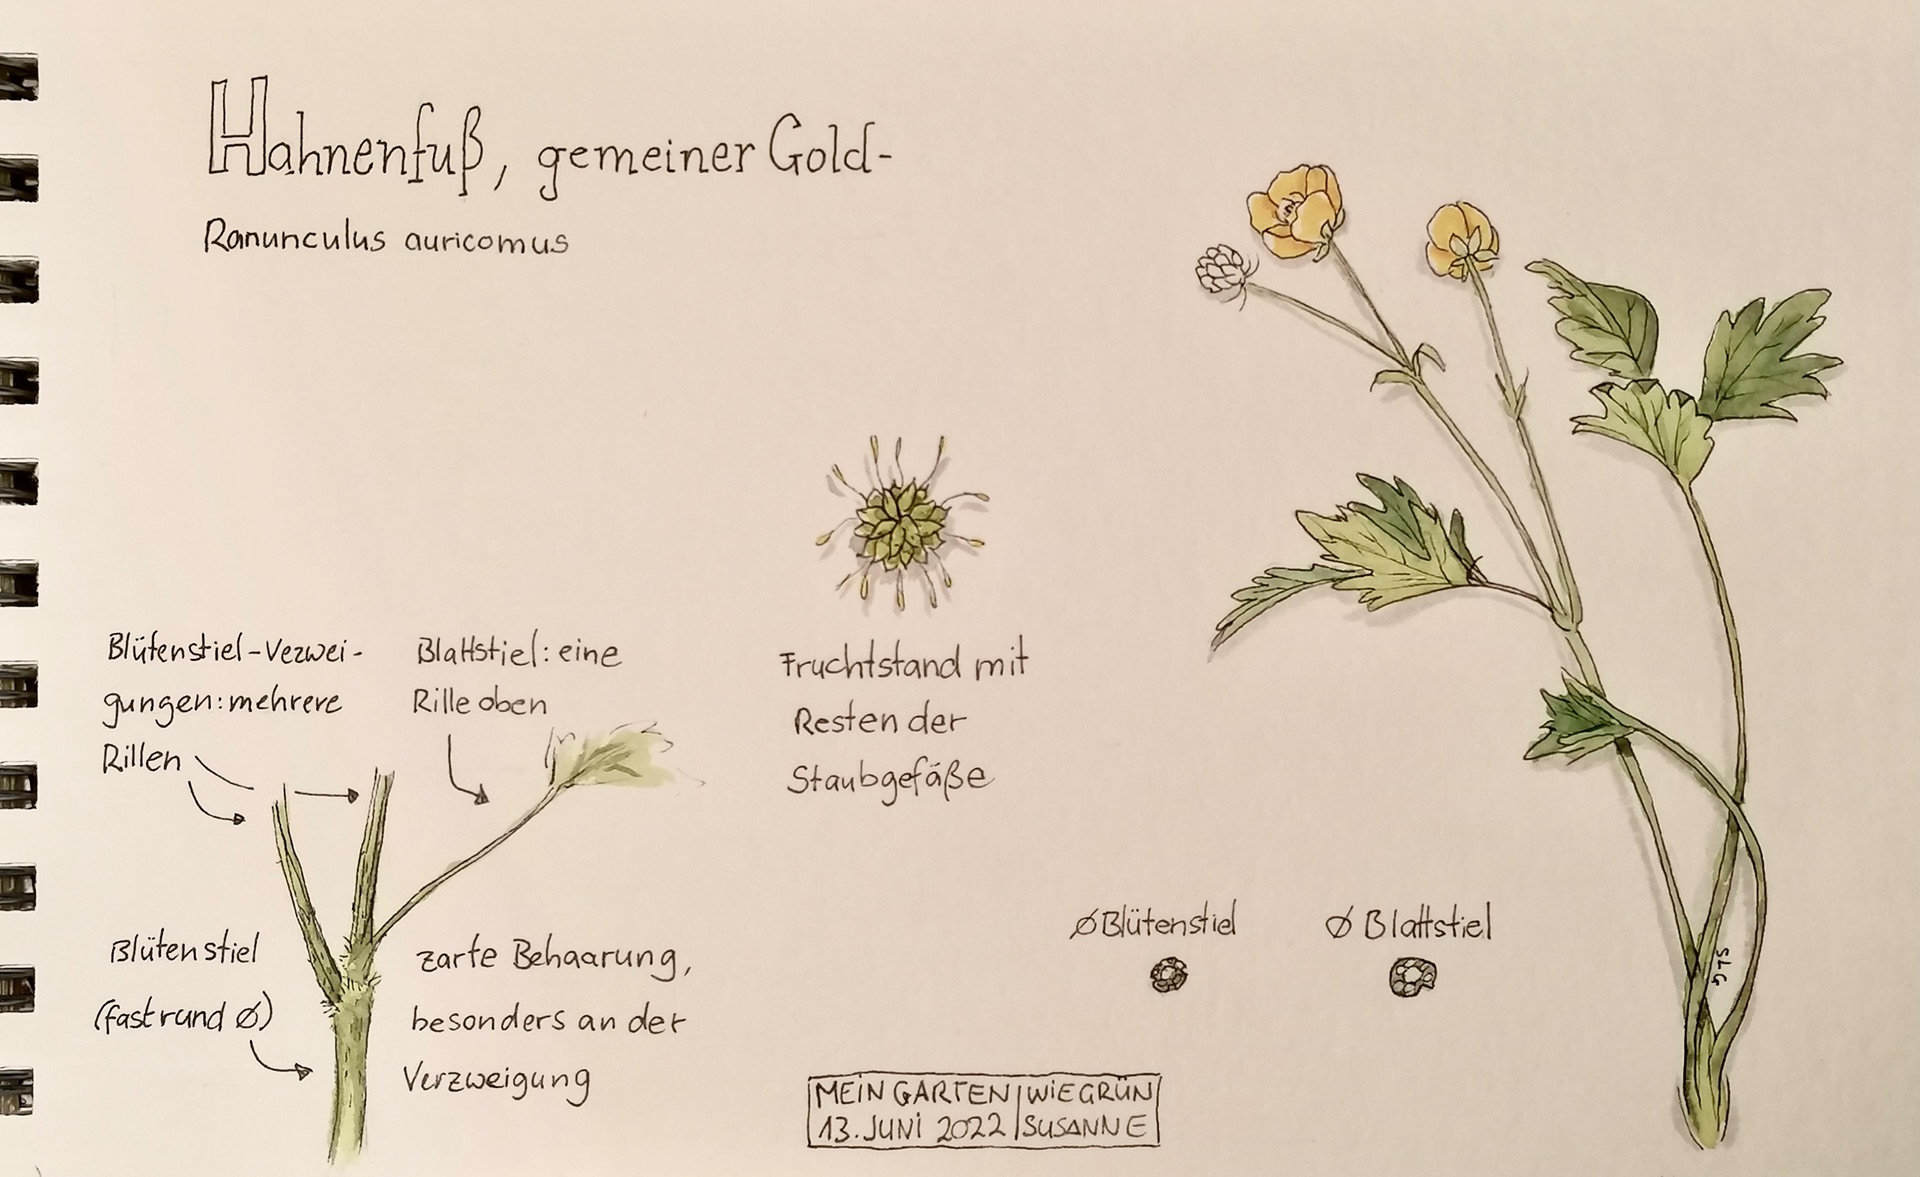 Hahnenfuß, gemeiner Gold-
Ranunculus auricomus
Blütenstiel-Vezwei-
gungen: mehrere
Rillen
Blattstiel: eine
Rille oben
Fruchtstand mit
Resten der
Staubgefäße
Blütenstiel
(fast rund ∅)
zarte Behaarung,
besonders an der
Verzweigung
∅ Blütenstiel
∅ Blattstiel
MEIN GARTEN | WIEGRÜN
13. JUNI 2022 | SUSANNE